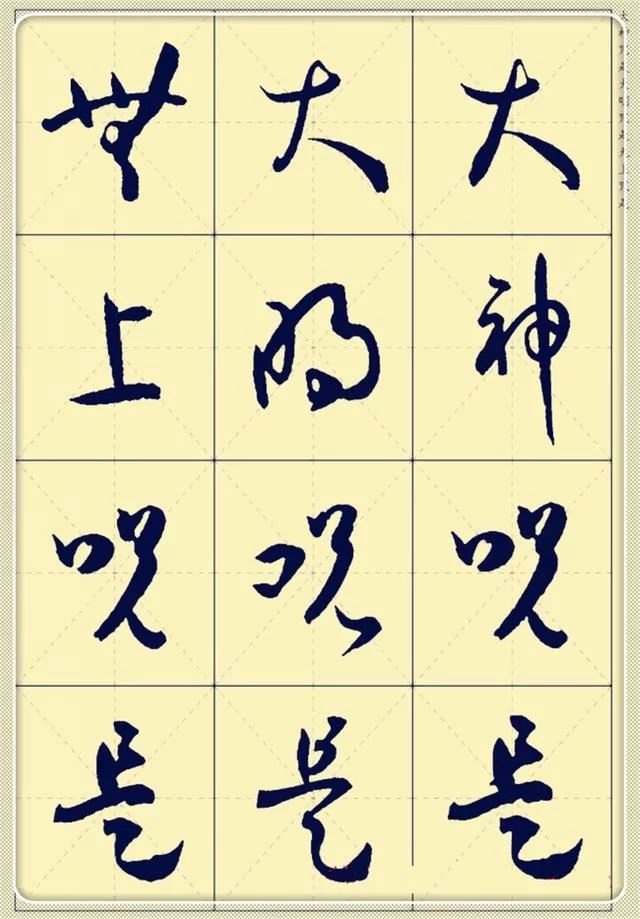 大神咒是
大明咒是
無上咒是